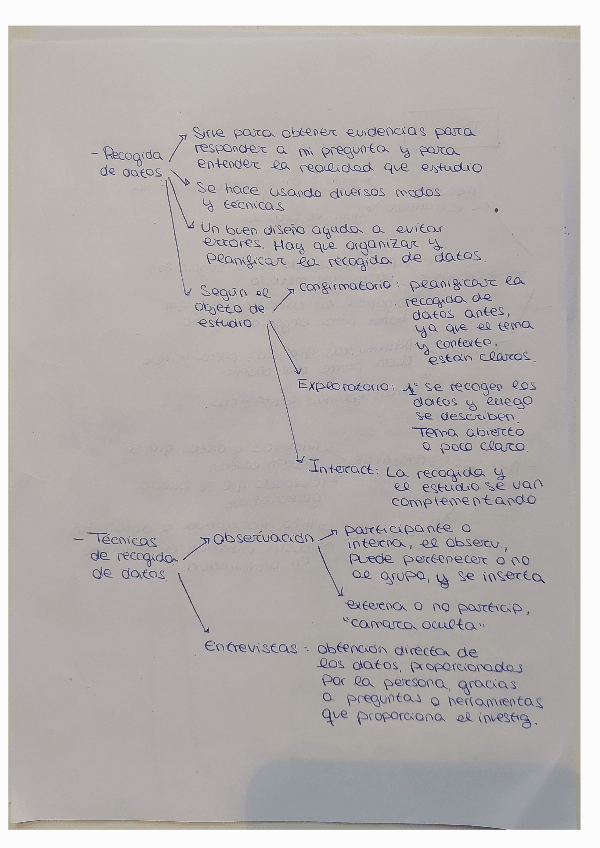 Sirve para obtener evidencias para
responder a mi pregunta y para
entender la realidad que estudio
- Recogida
de datos
Se hace usando diversos modos
y técnicas
Un buen diseño ayuda a evitar
errores. Hay que organizar y
planificar la recogida de datos.
Según el
objeto de
estudio
confirmatorio: planificar la
recogida de
datos antes,
ya que el tema
y contexto,
estan claros.
Exploratorio: 1º se recogen los
datos y luego
se describen.
Tema abierto
o poco claro.
Interact: La recogida y
el estudio se van
complementando
- Técnicas
de recogida
de datos
observación
participante o
interna, el observ.,
puede pertenecer o no
al grupo, y se inserta
externa o no particip,
"camara oculta"
Entrevistas: obtención directa de
los datos, proporcionados
por la persona, gracias
a preguntas o herramientas
que proporciona el investig.